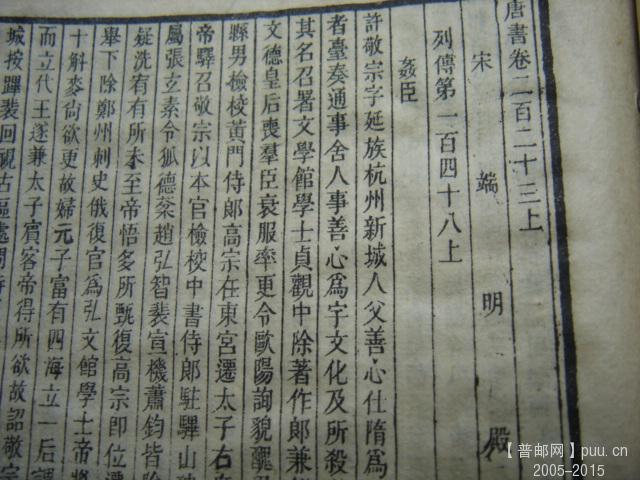 唐書卷二百二十三上
宋端明殿
列傳第一百四十八上
姦臣
許敬宗字延族杭州新城人父善心仕隋爲
者臺奏通事舍人事善心爲宇文化及所殺
其名召署文學館學士貞觀中除著作郎兼
文德皇后喪羣臣衰服率更令歐陽詢貌醜
縣男檢校黃門侍郎高宗在東宮遷太子右
帝驛召敬宗以本官檢校中書侍郎駐驆山
屬張玄素令狐德棻趙弘智裴宣機蕭鈞皆除
疑洗宥有所未至帝悟多所甄復高宗即位
舉下除鄭州刺史俄復官爲弘文館學士帝將
十斛麥尚欲更故婦元子富有四海立一后謂
而立代王遂兼太子賓客帝得所欲故詔敬宗
城按蹕裴回視古區處問侍
【普邮网】puu.cn
2005-2015